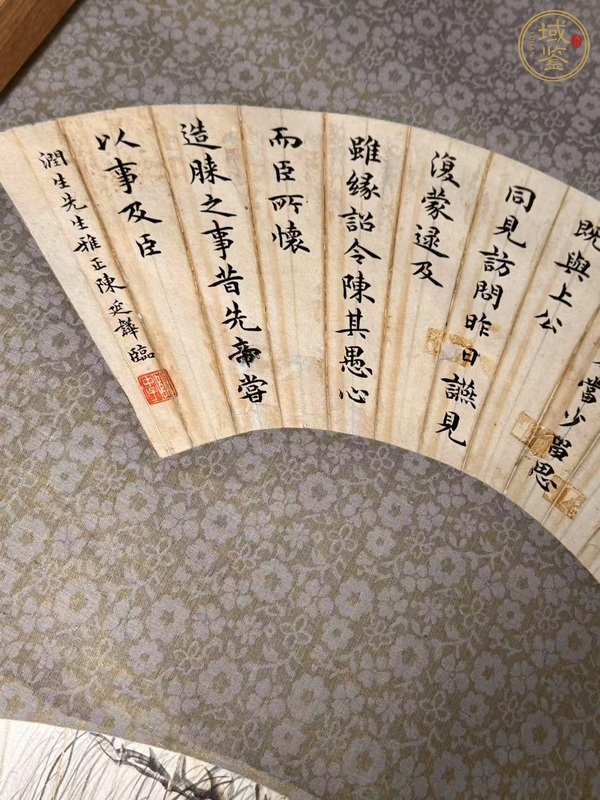 當少留思
既與上公
同見訪問昨日讌見
復蒙逮及
雖緣詔令陳其愚心
而臣所懷
造膝之事昔先帝嘗
以事及臣
潤生先生雅正陳延韡臨
域鉴